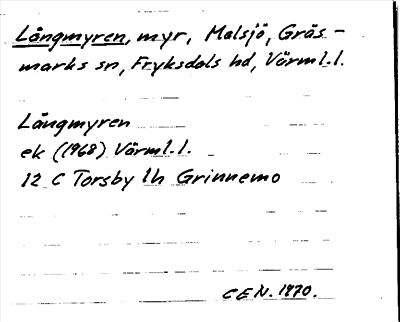 Långmyren, myr, Malsjö, Gräs-
marks sn, Fryksdals hd, Värml.l.
Långmyren
ek (1968) Värml.l.
12 C Torsby 1h Grinnemo
CEN. 1970.